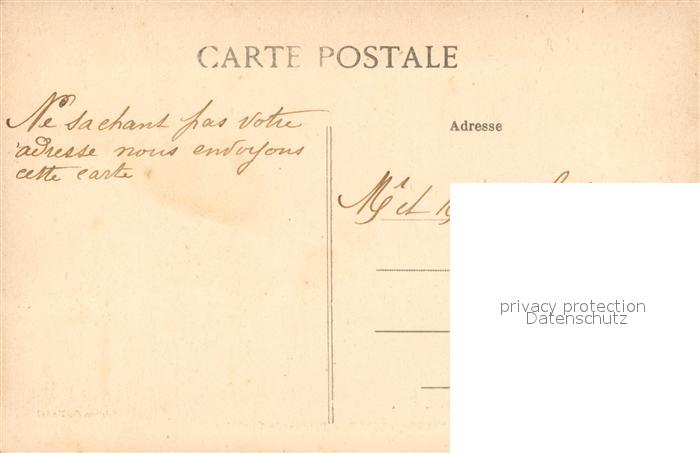 CARTE POSTALE
Ne sachant pas votre
adresse nous envoyons
cette carte
Adresse
Mr et
privacy protection
Datenschutz